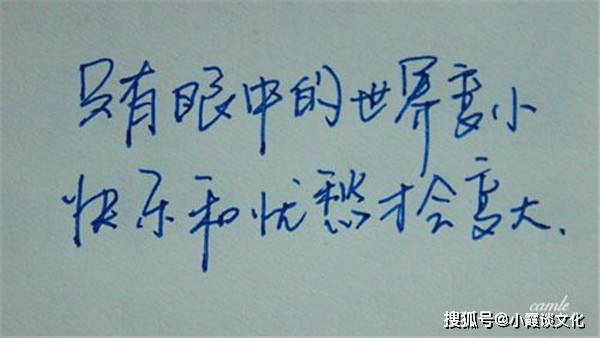 只有眼中的世界变小
快乐和忧愁才会变大.
camle
搜狐号@小霞谈文化